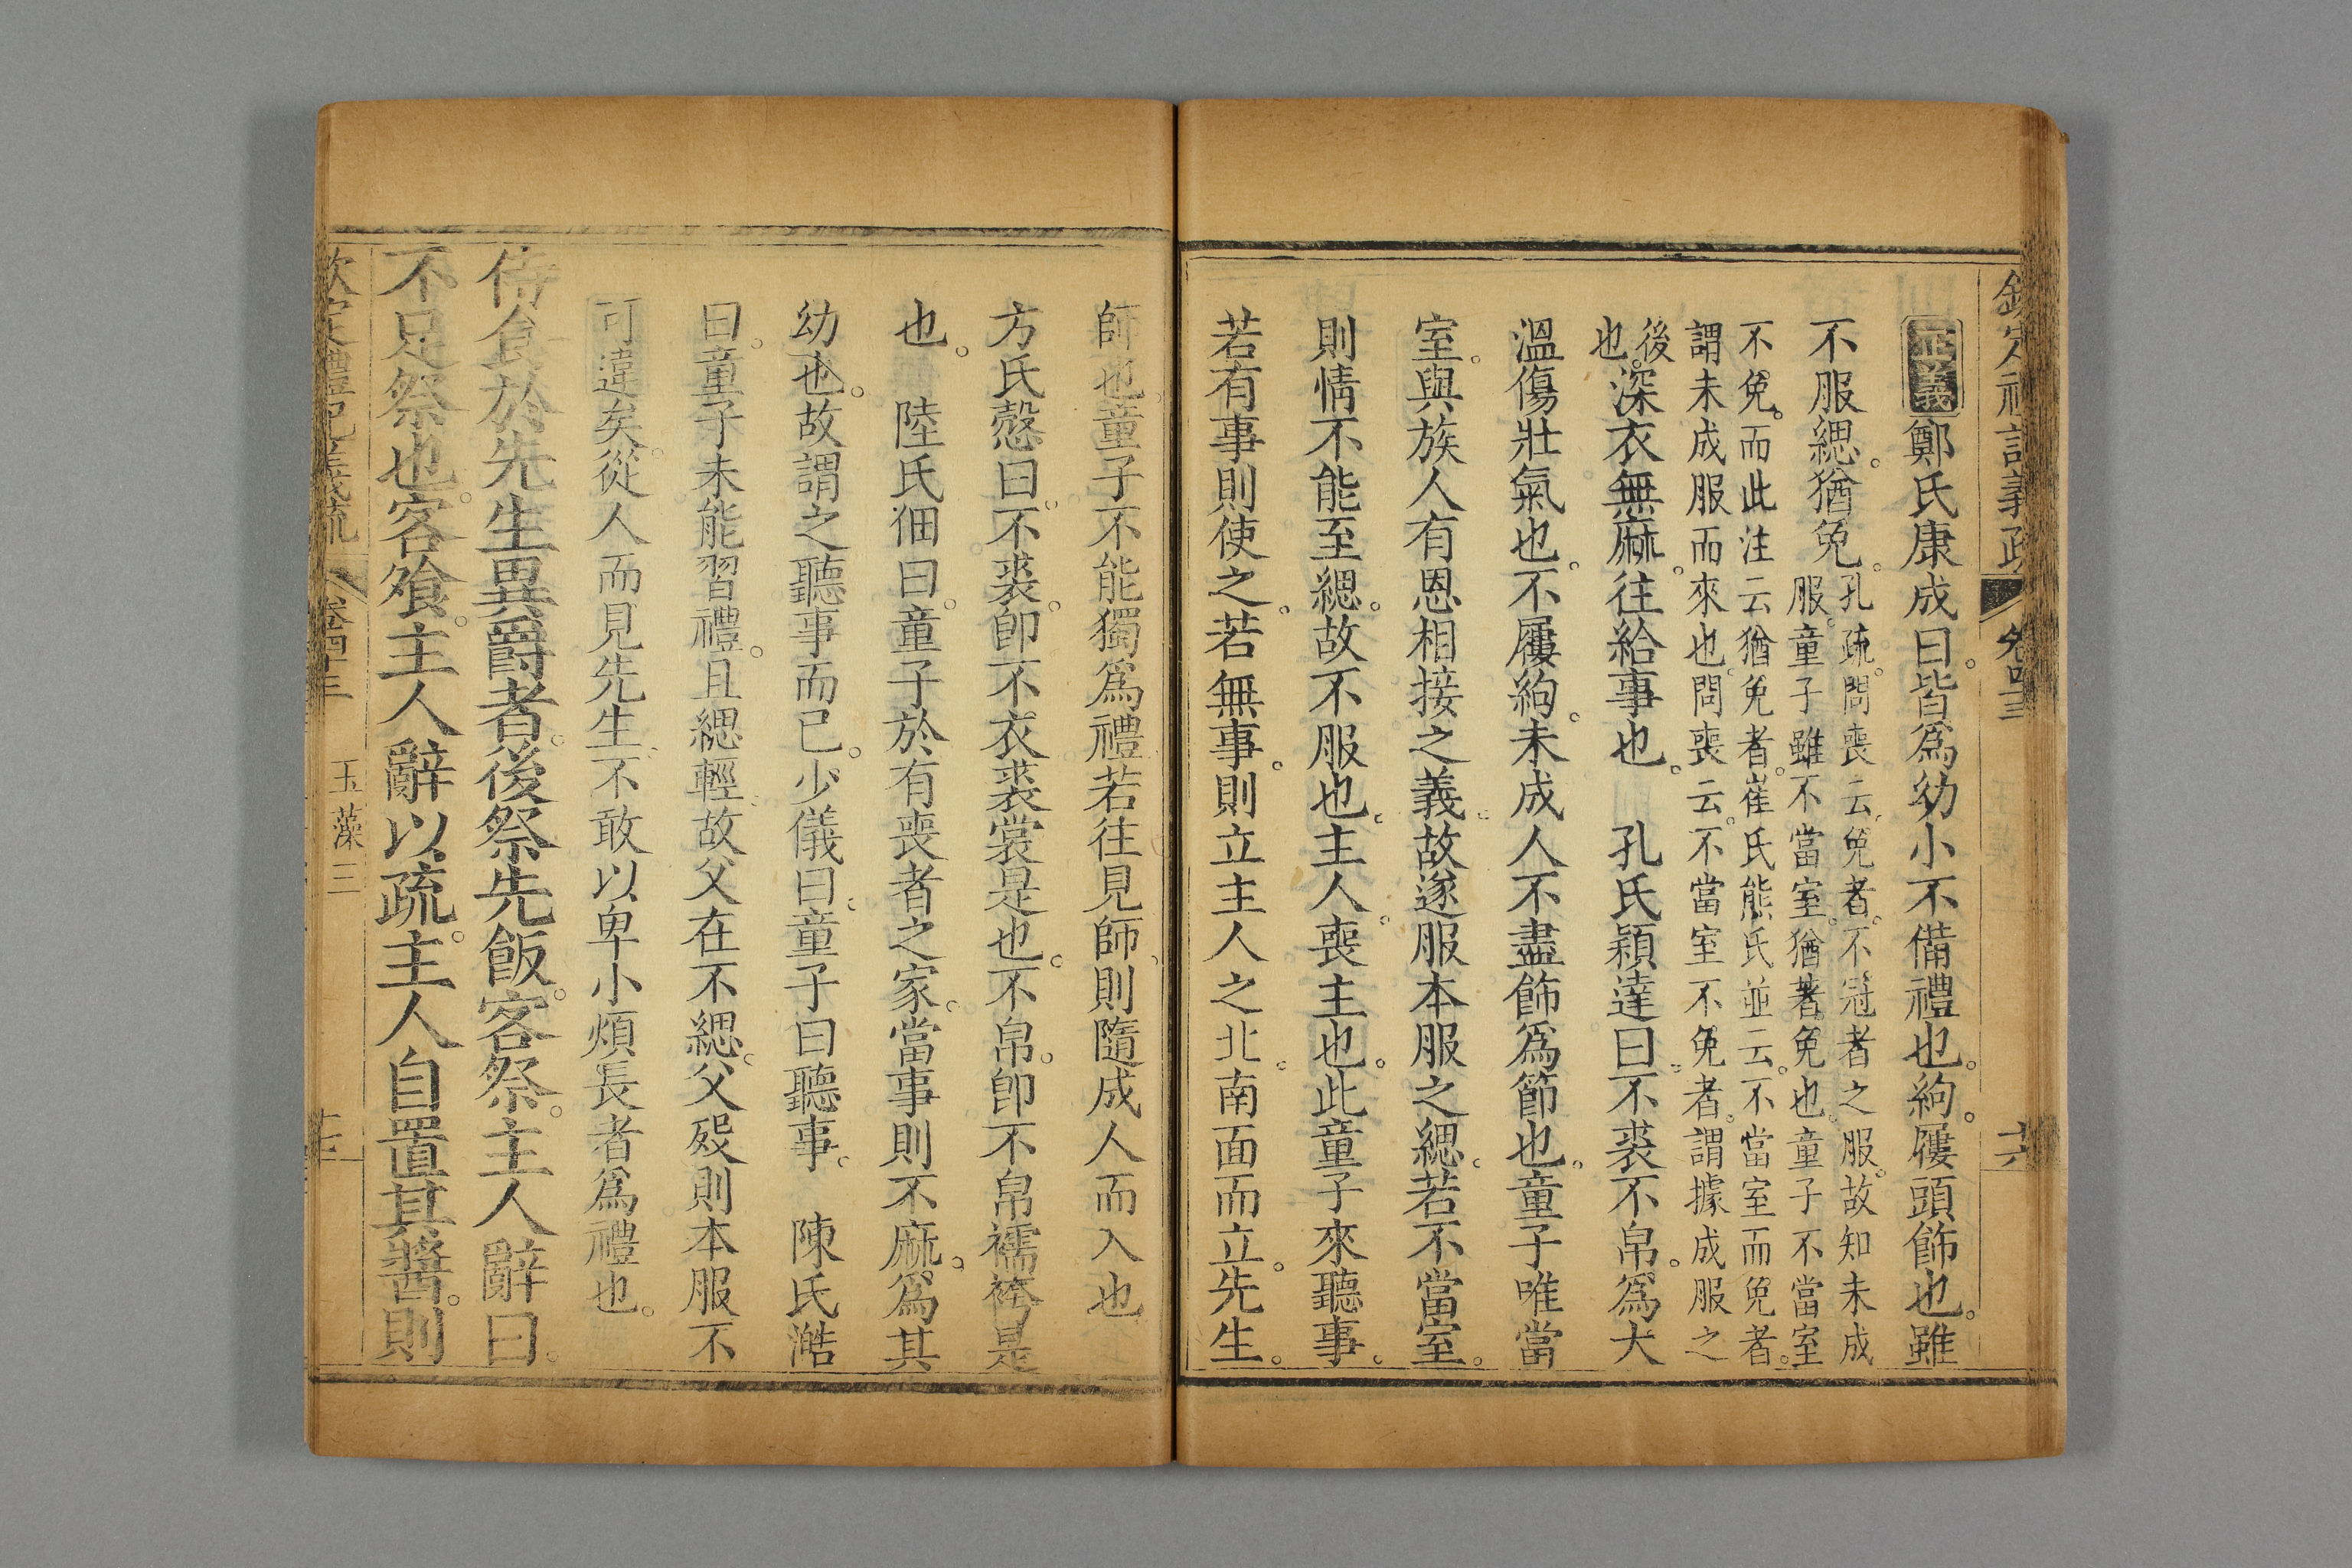 欽定禮記義疏 卷四十三 十六
正義鄭氏康成曰。皆爲幼小不備禮也。絇。屨頭飾也。雖
不服緦。猶免。孔疏。問喪云。免者。不冠者之服。故知未成
服。童子雖不當室。猶著免也。童子不當室
不免。而此注云猶免者。崔氏熊氏並云。不當室而免者。
謂未成服而來也。問喪云。不當室不免者。謂據成服之
後
也。深衣無麻。往給事也。 孔氏穎達曰。不裘不帛。爲大
溫傷壯氣也。不屨絇。未成人不盡飾爲節也。童子唯當
室。與族人有恩相接之義。故遂服本服之緦。若不當室。
則情不能至緦。故不服也。主人。喪主也。此童子來聽事。
若有事則使之。若無事。則立主人之北。南面而立。先生。
師也。童子不能獨爲禮。若往見師。則隨成人而入也
方氏慤曰。不裘。卽不衣裘裳是也。不帛。卽不帛襦袴是
也。 陸氏佃曰。童子於有喪者之家。當事則不麻。爲其
幼也。故謂之聽事而已。少儀曰。童子曰聽事。 陳氏澔
曰。童子未能習禮。且緦輕。故父在不緦。父歿則本服不
可違矣。從人而見先生。不敢以卑小煩長者爲禮也。
侍食於先生異爵者。後祭先飯。客祭。主人辭曰。
不足祭也。客飧。主人辭以疏。主人自置其醬。則
欽定禮記義疏 卷四十三 玉藻三 十七